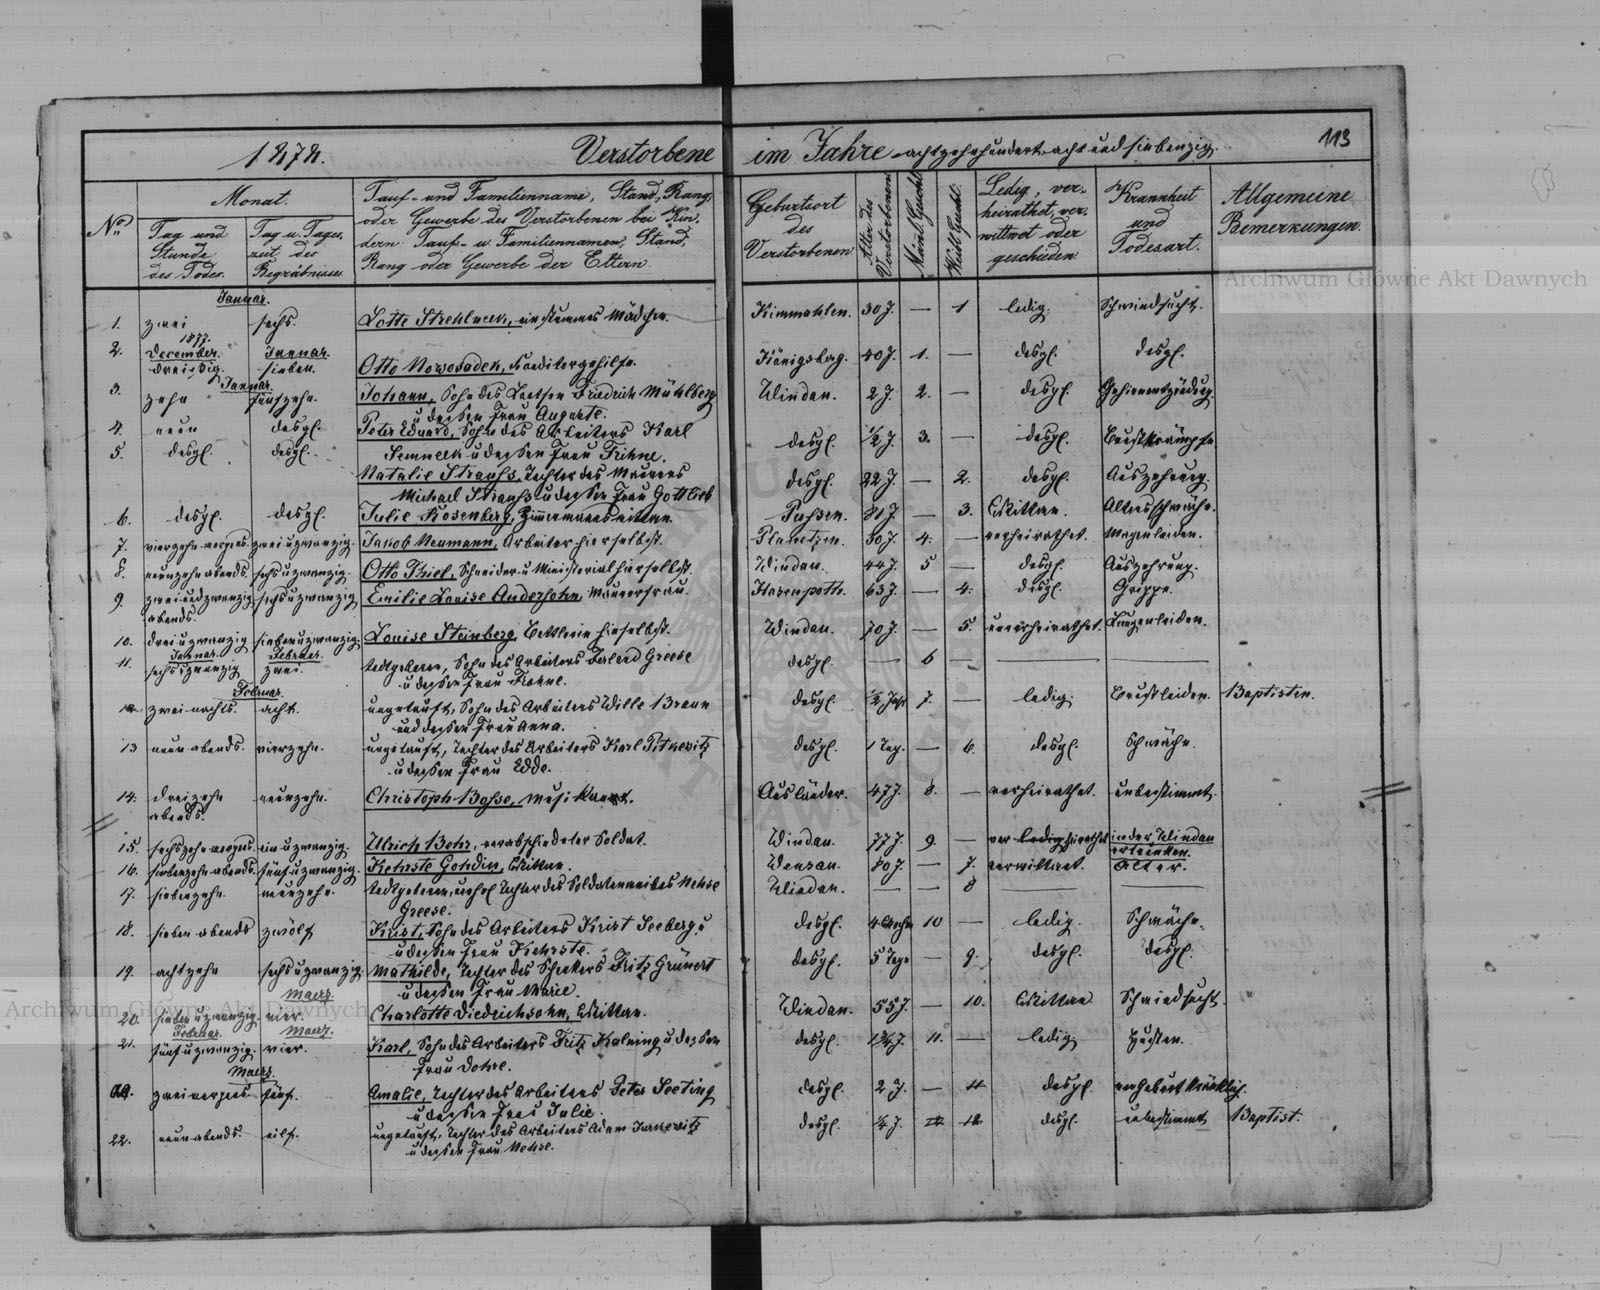 1878. Verstorbene im Jahre achtzehnhundert acht und siebenzig. 113
No. Monat. Tauf- und Familienname, Stand, Rang
oder Gewerbe des Verstorbenen bei Kin-
dern: Tauf- u Familiennamen, Stand,
Rang oder Gewerbe der Eltern.
Tag und
Stunde
des Todes.
Tag u. Tages-
zeit des
Begräbnisses
Geburtsort
des
Verstorbenen
Alter des
Verstorbenen
Männl. Geschl.
Weibl. Geschl.
Ledig, ver-
heirathet, ver-
wittwet oder
geschieden
Krankheit
und
Todesart.
Allgemeine
Bemerkungen.
Archiwum Główne Akt Dawnych
Januar.
1. zwei sechs. Lotte Strehlneek, ein stummes Mädchen. Kimmahlen. 30 J. — 1 ledig. Schwindsucht.
1877.
2. December. Januar.
dreissig. sieben. Otto Nowosadek, Konditorgehilfe. Königsberg. 40 J. 1. — desgl. desgl.
Januar.
3. zehn fünfzehn. Johann, Sohn des Lootsen Friedrich Mühlberg Windau. 2 J. 2. — desgl.
u dessen Frau Auguste.
4. neun desgl. Peter Eduard, Sohn des Arbeiters Karl desgl. ½ J. 3. — desgl. Brustkrämpfe
Semneek u dessen Frau Trihne.
5. desgl. desgl. Natalie Strauss, Tochter des Maurers desgl. 22 J. — 2. desgl. Auszehrung.
Michael Strauss u dessen Frau Gottlieb
6. desgl. desgl. Julie Rosenberg, Zimmermannswittwe. Passen. 80 J. — 3. Wittwe. Altersschwäche.
7. vierzehn morgens. zwei u zwanzig. Jakob Neumann, Arbeiter hierselbst. 50 J. 4. — verheirathet. Magenleiden.
8. neunzehn abends. sechs u zwanzig. Otto Thiel, Schneider u Ministerial hierselbst. Windau. 44 J. 5 — desgl. Auszehrung.
9. zwei und zwanzig sechs u zwanzig Emilie Louise Andersohn, Maurerfrau. Hasenpoth. 63 J. — 4. desgl. Grippe.
abends.
10. drei u zwanzig sieben u zwanzig. Louise Steinberg, Bettlerin hierselbst. Windau. 70 J. — 5. unverheirathet. Lungenleiden.
Januar. Februar.
11. sechs u zwanzig zwei. todtgeboren, Sohn des Arbeiters Greese desgl. — 6 — — —
u dessen Frau
Februar.
12 zwei nachts. acht. ungetauft, Sohn des Arbeiters Wille Braun desgl. ½ Jahr 7. — ledig. Brustleiden. Baptisten.
und dessen Frau Anna.
13 neun abends. vierzehn. ungetauft, Tochter des Arbeiters Karl Pitkewitz desgl. 1 Tag. — 6. desgl. Schwäche.
u dessen Frau Edde.
14. dreizehn neunzehn. Christoph Bosse, Musikant. Ausländer. 47 J. 8. — verheirathet. unbestimmt.
abends.
15. sechszehn morgens. ein u zwanzig. Ulrich Behr, verabschiedeter Soldat. Windau. 77 J. 9. — verheirathet in der Windau
ertrunken.
16. siebenzehn abends. fünf u zwanzig. Kehrste Gohdin, Wittwe. Wensau. 80 J. — 7. verwittwet. Alter.
17. siebenzehn. neunzehn. todtgeboren, Tochter des Soldatenweibes Nehse Windau. — — 8 — —
Greese.
18. sieben abends zwölf Krist, Sohn des Arbeiters Krist Seeberg u desgl. 4 Wochen 10 — ledig. Schwäche.
u dessen Frau Kehrste.
19. achtzehn sechs u zwanzig. Mathilde, Tochter des Fritz Grünert desgl. 5 Tage — 9. desgl. desgl.
u dessen Frau Marie.
Maerz.
20. sieben u zwanzig. vier. Charlotte Diedrichsohn, Wittwe. Windau. 55 J. — 10. Wittwe Schwindsucht.
Februar. Maerz.
21. fünf u zwanzig. vier. Karl, Sohn des Arbeiters Fritz Kalning u dessen desgl. 11. — ledig Husten.
Frau Dohre.
Maerz.
zwei morgens fünf. Amalie, Tochter des Arbeiters Peter Seeting desgl. 2 J. — 11 desgl. von Geburt kränklich.
u dessen Frau Julie.
22. neun abends. eilf. ungetauft, Tochter des Arbeiters Adam Jurkewitz desgl. ½ J. — 12 desgl. unbestimmt Baptist.
u dessen Frau Nehse.
Archiwum Główne Akt Dawnych